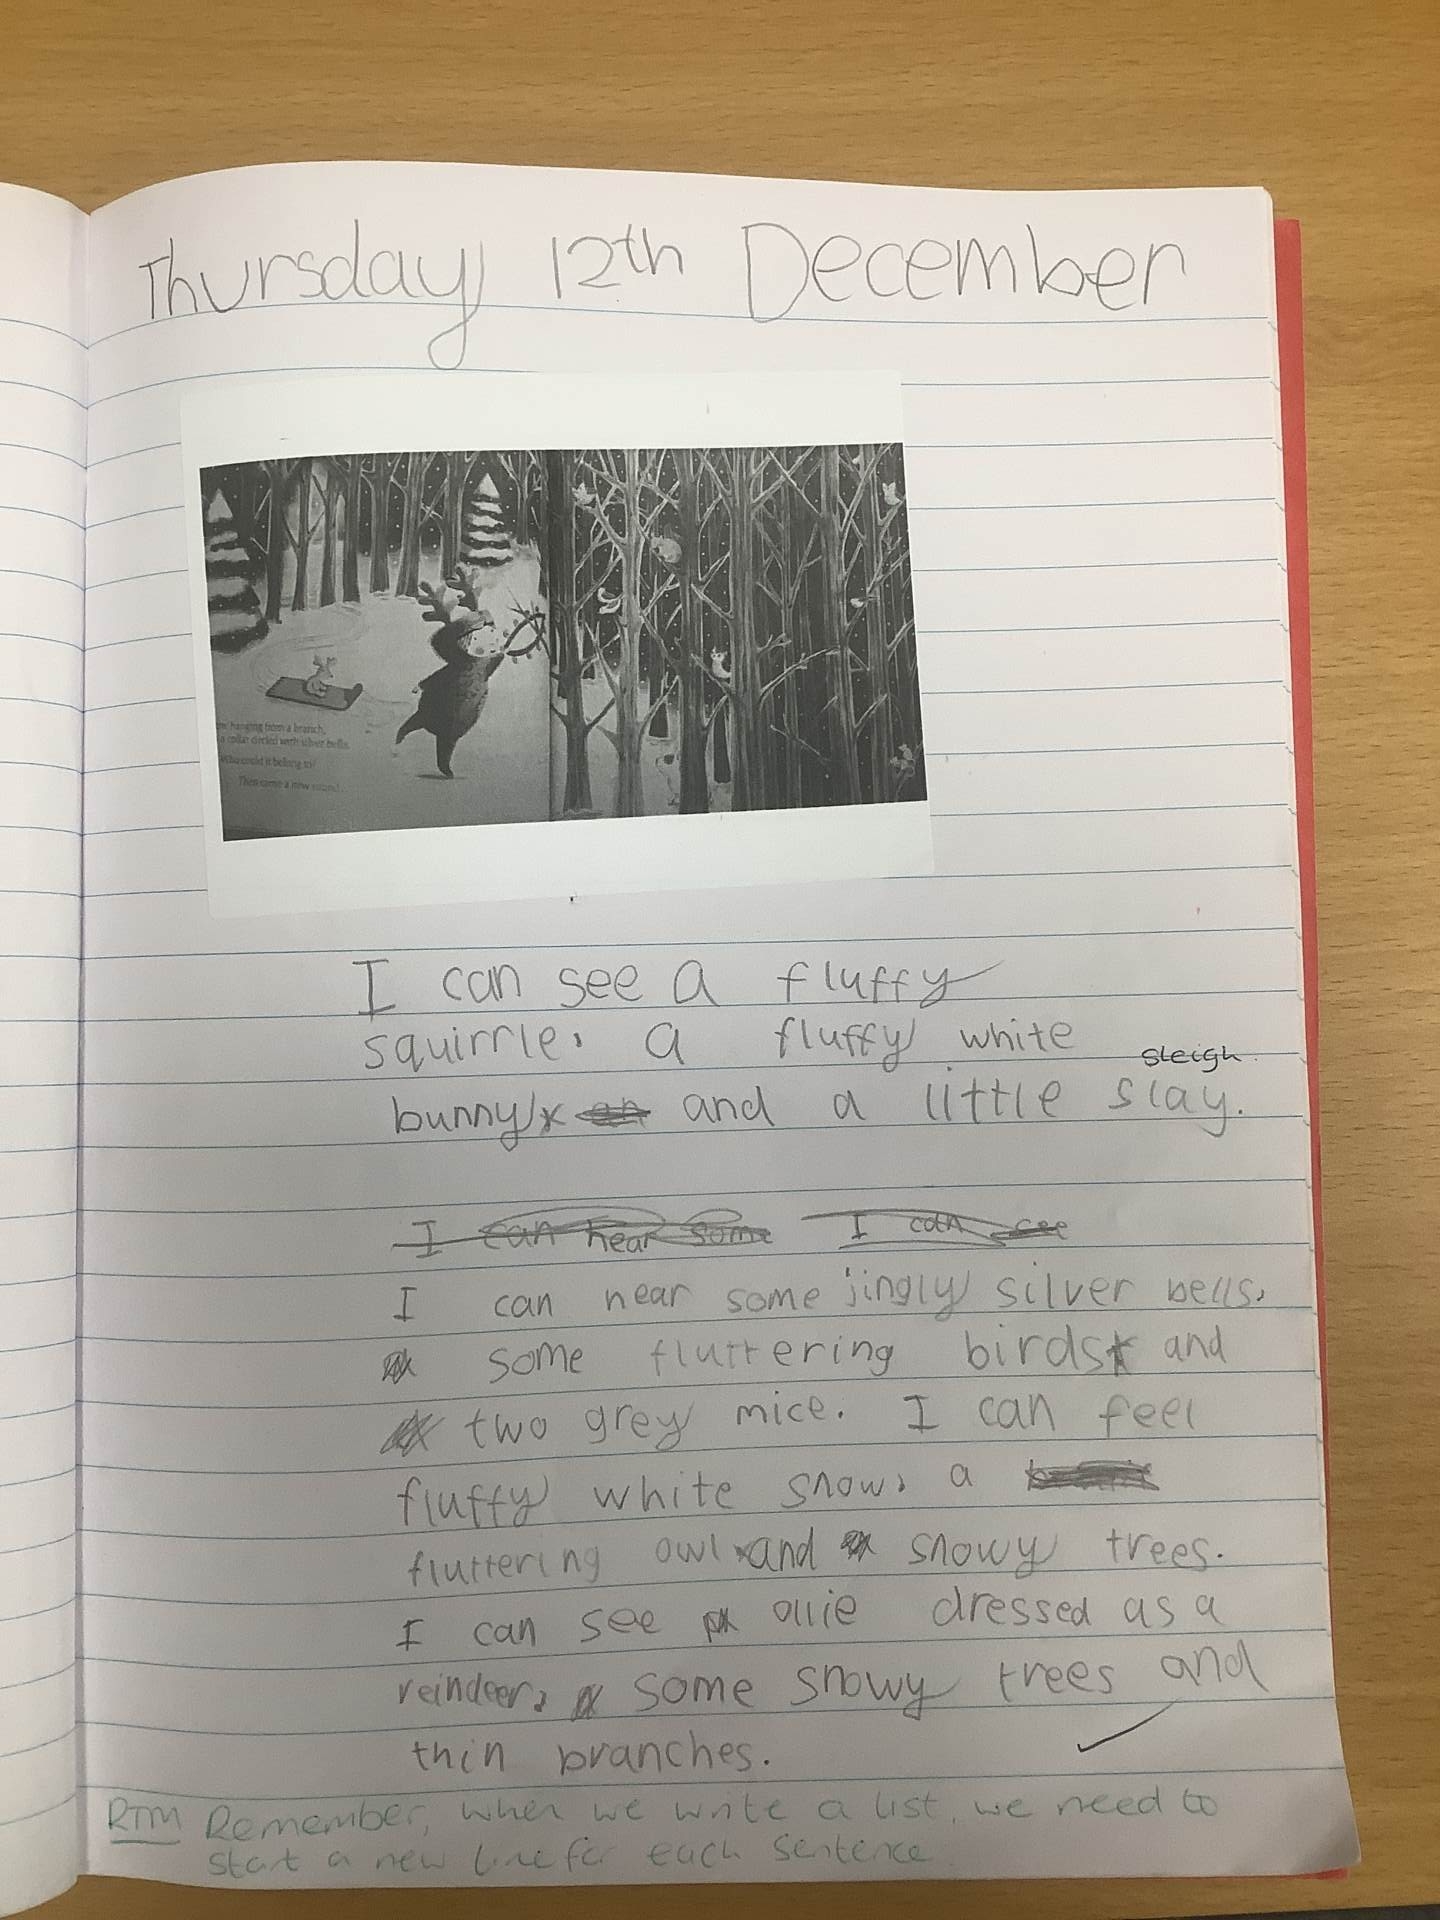 Thursday 12th December
hanging from a branch,
a collar circled with silver bells.
Who could it belong to?
Then came a new sound
I can see a fluffy
squirrle, a fluffy white
sleigh
bunny and a little slay.
I can hear some I can see
I can hear some jingly silver bells,
some fluttering birds and
two grey mice. I can feel
fluffy white snow, a
fluttering owl and snowy trees.
I can see ollie dressed as a
reindeer, some snowy trees and
thin branches.
RTM Remember, when we write a list, we need to
start a new line for each sentence